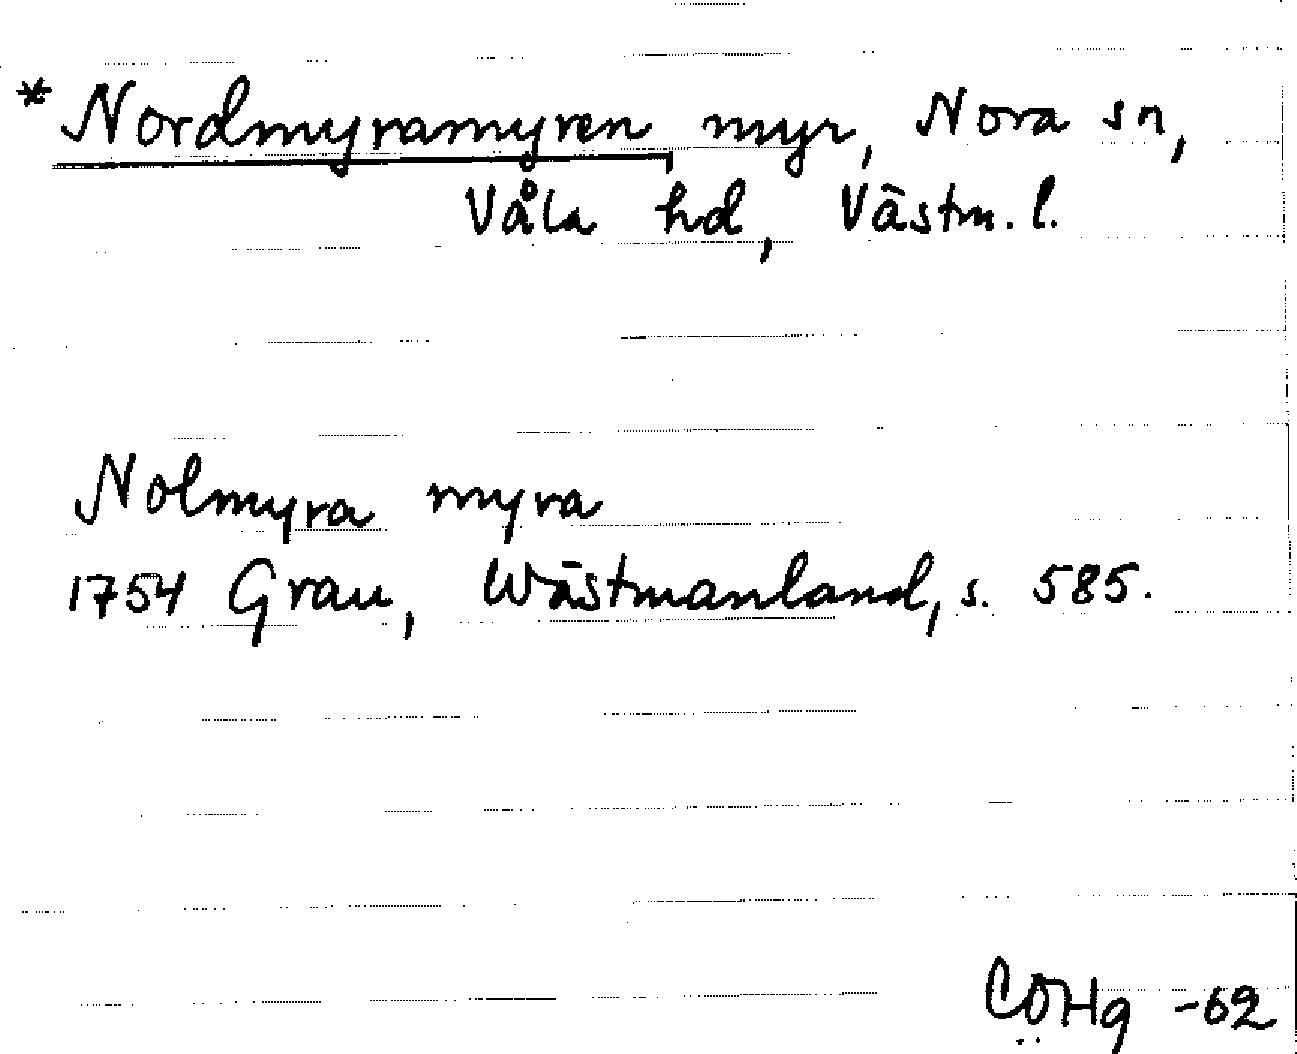 * Nordmyramyren myr, Nora sn,
Våla hd, Västm. l.
Nolmyra myra
1754 Grau, Wästmanland, s. 585.
CÖHg -62